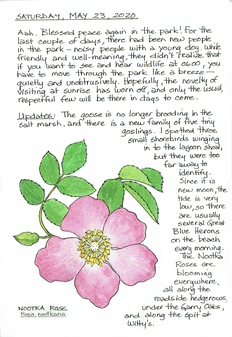 SATURDAY, MAY 23, 2020
Aah. Blessed peace again in the park! For the
last couple of days, there had been new people
in the park — noisy people with a young dog. While
friendly and well-meaning, they didn't realize that
if you want to see and hear wildlife at 0600, you
have to move through the park like a breeze —
quietly and unobtrusively. Hopefully, the novelty of
visiting at sunrise has worn off, and only the usual,
respectful few will be there in days to come.
Updates: The goose is no longer brooding in the
salt marsh, and there is a new family of five tiny
goslings. I spotted three
small shorebirds winging
in to the lagoon shoal,
but they were too
far away to
identify.
Since it is
new moon, the
tide is very
low, so there
are usually
several Great
Blue Herons
on the beach
every morning.
The Nootka
Roses are
blooming
everywhere,
all along the
roadside hedgerows,
under the Garry Oaks,
and along the spit at
Witty's.
NOOTKA ROSE
Rosa nutkana